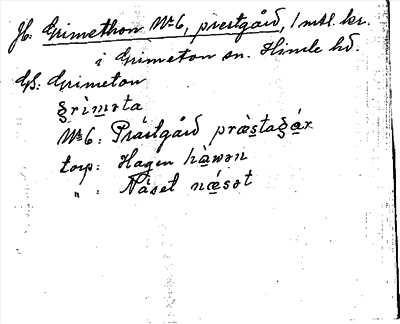 Jb: Grimethon No 6, prestgård, 1 mtl. kr.
i Grimeton sn. Himle hd.
GS: Grimeton
gri̱mǝta
No 6: Prästgård præstagår
torp: Hagen hàwǝn
" : Näset næ̀sǝt